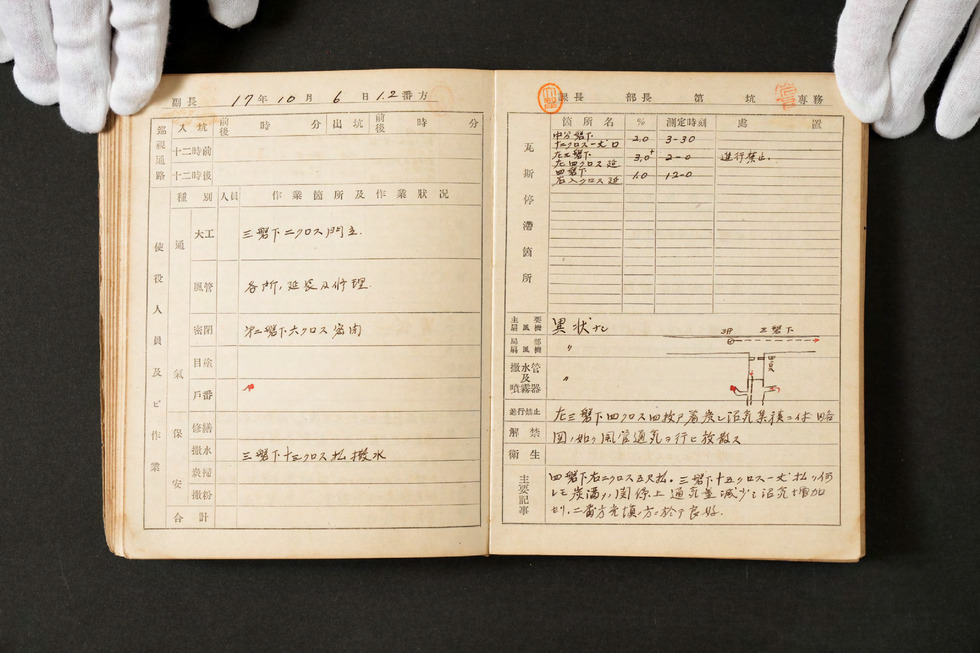 副長 17年10月6日1.2番方
鑑視通路 入坑 前後 時 分 出坑 前後 時 分
十二時前
十二時後
使役人員及ビ作業
種別 人員 作業箇所及作業狀況
通氣
大工 三盤下二クロス門立.
風管 各所、延長及修理
密閉 第二盤下六クロス密閉
目塗
戸番
保安
修繕
撒水 三盤下十三クロス払撒水
炭掃
撒粉
合計
課長 部長 第 坑 専務
瓦斯停滯箇所
箇所名 % 測定時刻 處置
中分盤下
十二クロス一丈口 2.0 3-30
左三盤下
左四クロス延 3.0+ 2-0 進行禁止.
四盤下
右入クロス延 1.0 12-0
主要扇風機 異状ナシ
局部扇風機 〃
撒水管及噴霧器 〃
三盤下
進行禁止 左三盤下四クロス四枚戸蓄炭シ沼気集積
解禁 図ノ如ク風管通気ヲ行ヒ放散ス
衛生
主要記事
四盤下右二クロス五尺払. 三盤下十五クロス一丈払ハ何
レモ炭満ノ関係上通気量減少シ沼気増加
セリ. 二番方充填ノ方ニ於テ良好.